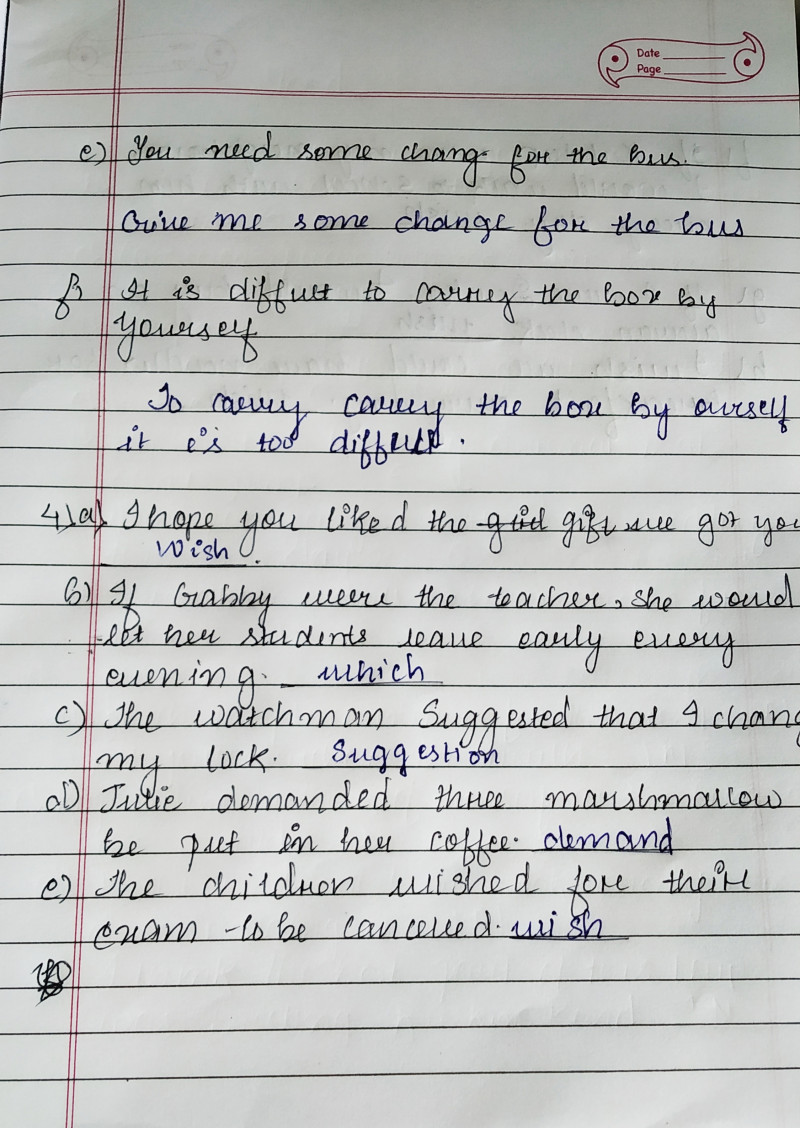 Date
Page
e) You need some chang. for the bus.
Give me some change for the bus
f) It is diffult to carrey the box by
yourself
To carry carry the box by ourself
it is too diffult.
4)a) I hope you liked the gift we got you
wish.
b) If Gabby were the teacher, she would
let her students leave early every
evening. which
c) The watchman Suggested that I chang
my lock. Suggestion
d) Julie demanded three marshmallow
be put in her coffee. demand
e) The children wished for their
exam to be cancelled. wish